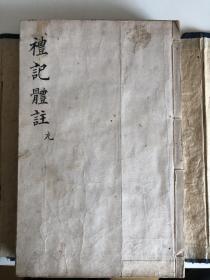 禮記體註
元